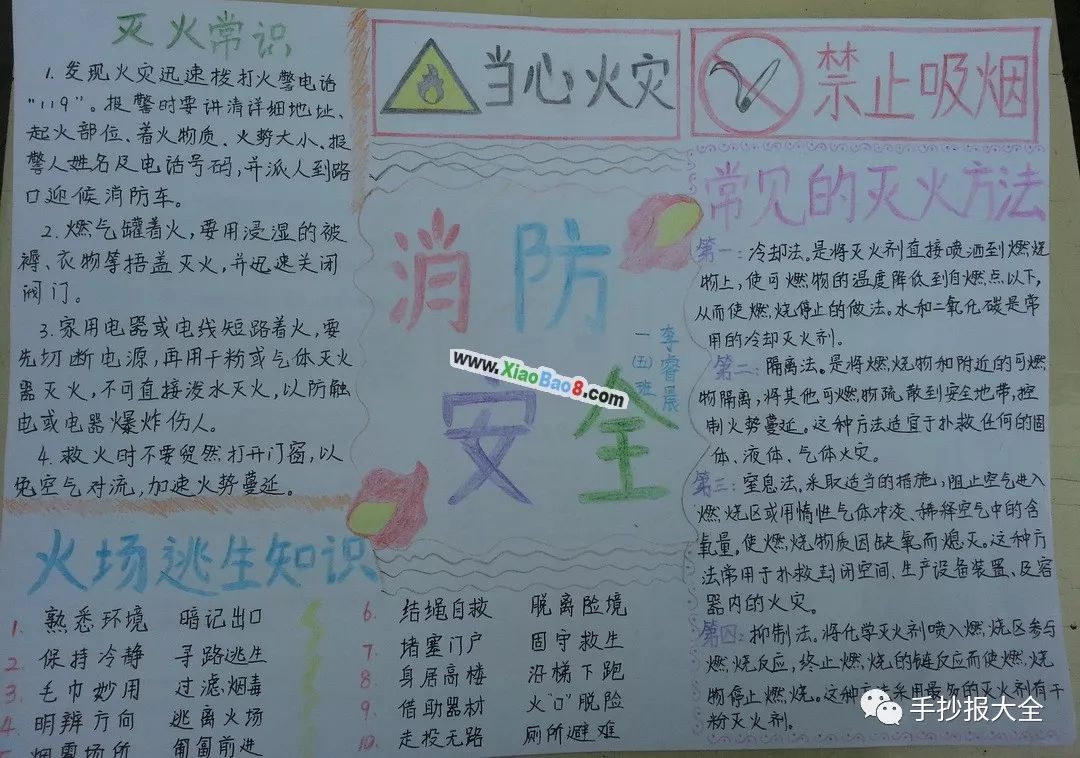 灭火常识
1. 发现火灾迅速拨打火警电话
"119"。报警时要讲清详细地址、
起火部位、着火物质、火势大小、报
警人姓名及电话号码，并派人到路
口迎候消防车。
2. 燃气罐着火，要用浸湿的被
褥、衣物等捂盖灭火，并迅速关闭
阀门。
3. 家用电器或电线短路着火，要
先切断电源，再用干粉或气体灭火
器灭火，不可直接泼水灭火，以防触
电或电器爆炸伤人。
4. 救火时不要贸然打开门窗，以
免空气对流，加速火势蔓延。
当心火灾
禁止吸烟
消防
安全
一(五)班
李睿晨
www.XiaoBao8.com
常见的灭火方法
第一：冷却法。是将灭火剂直接喷洒到燃烧
物上，使可燃物的温度降低到自燃点以下，
从而使燃烧停止的做法。水和二氧化碳是常
用的冷却灭火剂。
第二：隔离法。是将燃烧物和附近的可燃
物隔离，将其他可燃物疏散到安全地带，控
制火势蔓延。这种方法适宜于扑救任何的固
体、液体、气体火灾。
第三：窒息法。采取适当的措施，阻止空气进入
燃烧区或用惰性气体冲淡、稀释空气中的含
氧量，使燃烧物质因缺氧而熄灭。这种方
法常用于扑救封闭空间、生产设备装置、及容
器内的火灾。
第四：抑制法。将化学灭火剂喷入燃烧区参与
燃烧反应，终止燃烧的链反应而使燃烧
物停止燃烧。这种方法采用最多的灭火剂有干
粉灭火剂。
火场逃生知识
1. 熟悉环境 暗记出口
2. 保持冷静 寻路逃生
3 毛巾妙用 过滤烟毒
4 明辨方向 逃离火场
5 烟雾场所 匍匐前进
6. 结绳自救 脱离险境
7 堵塞门户 固守救生
8 身居高楼 沿梯下跑
9. 借助器材 火"口"脱险
10. 走投无路 厕所避难
手抄报大全